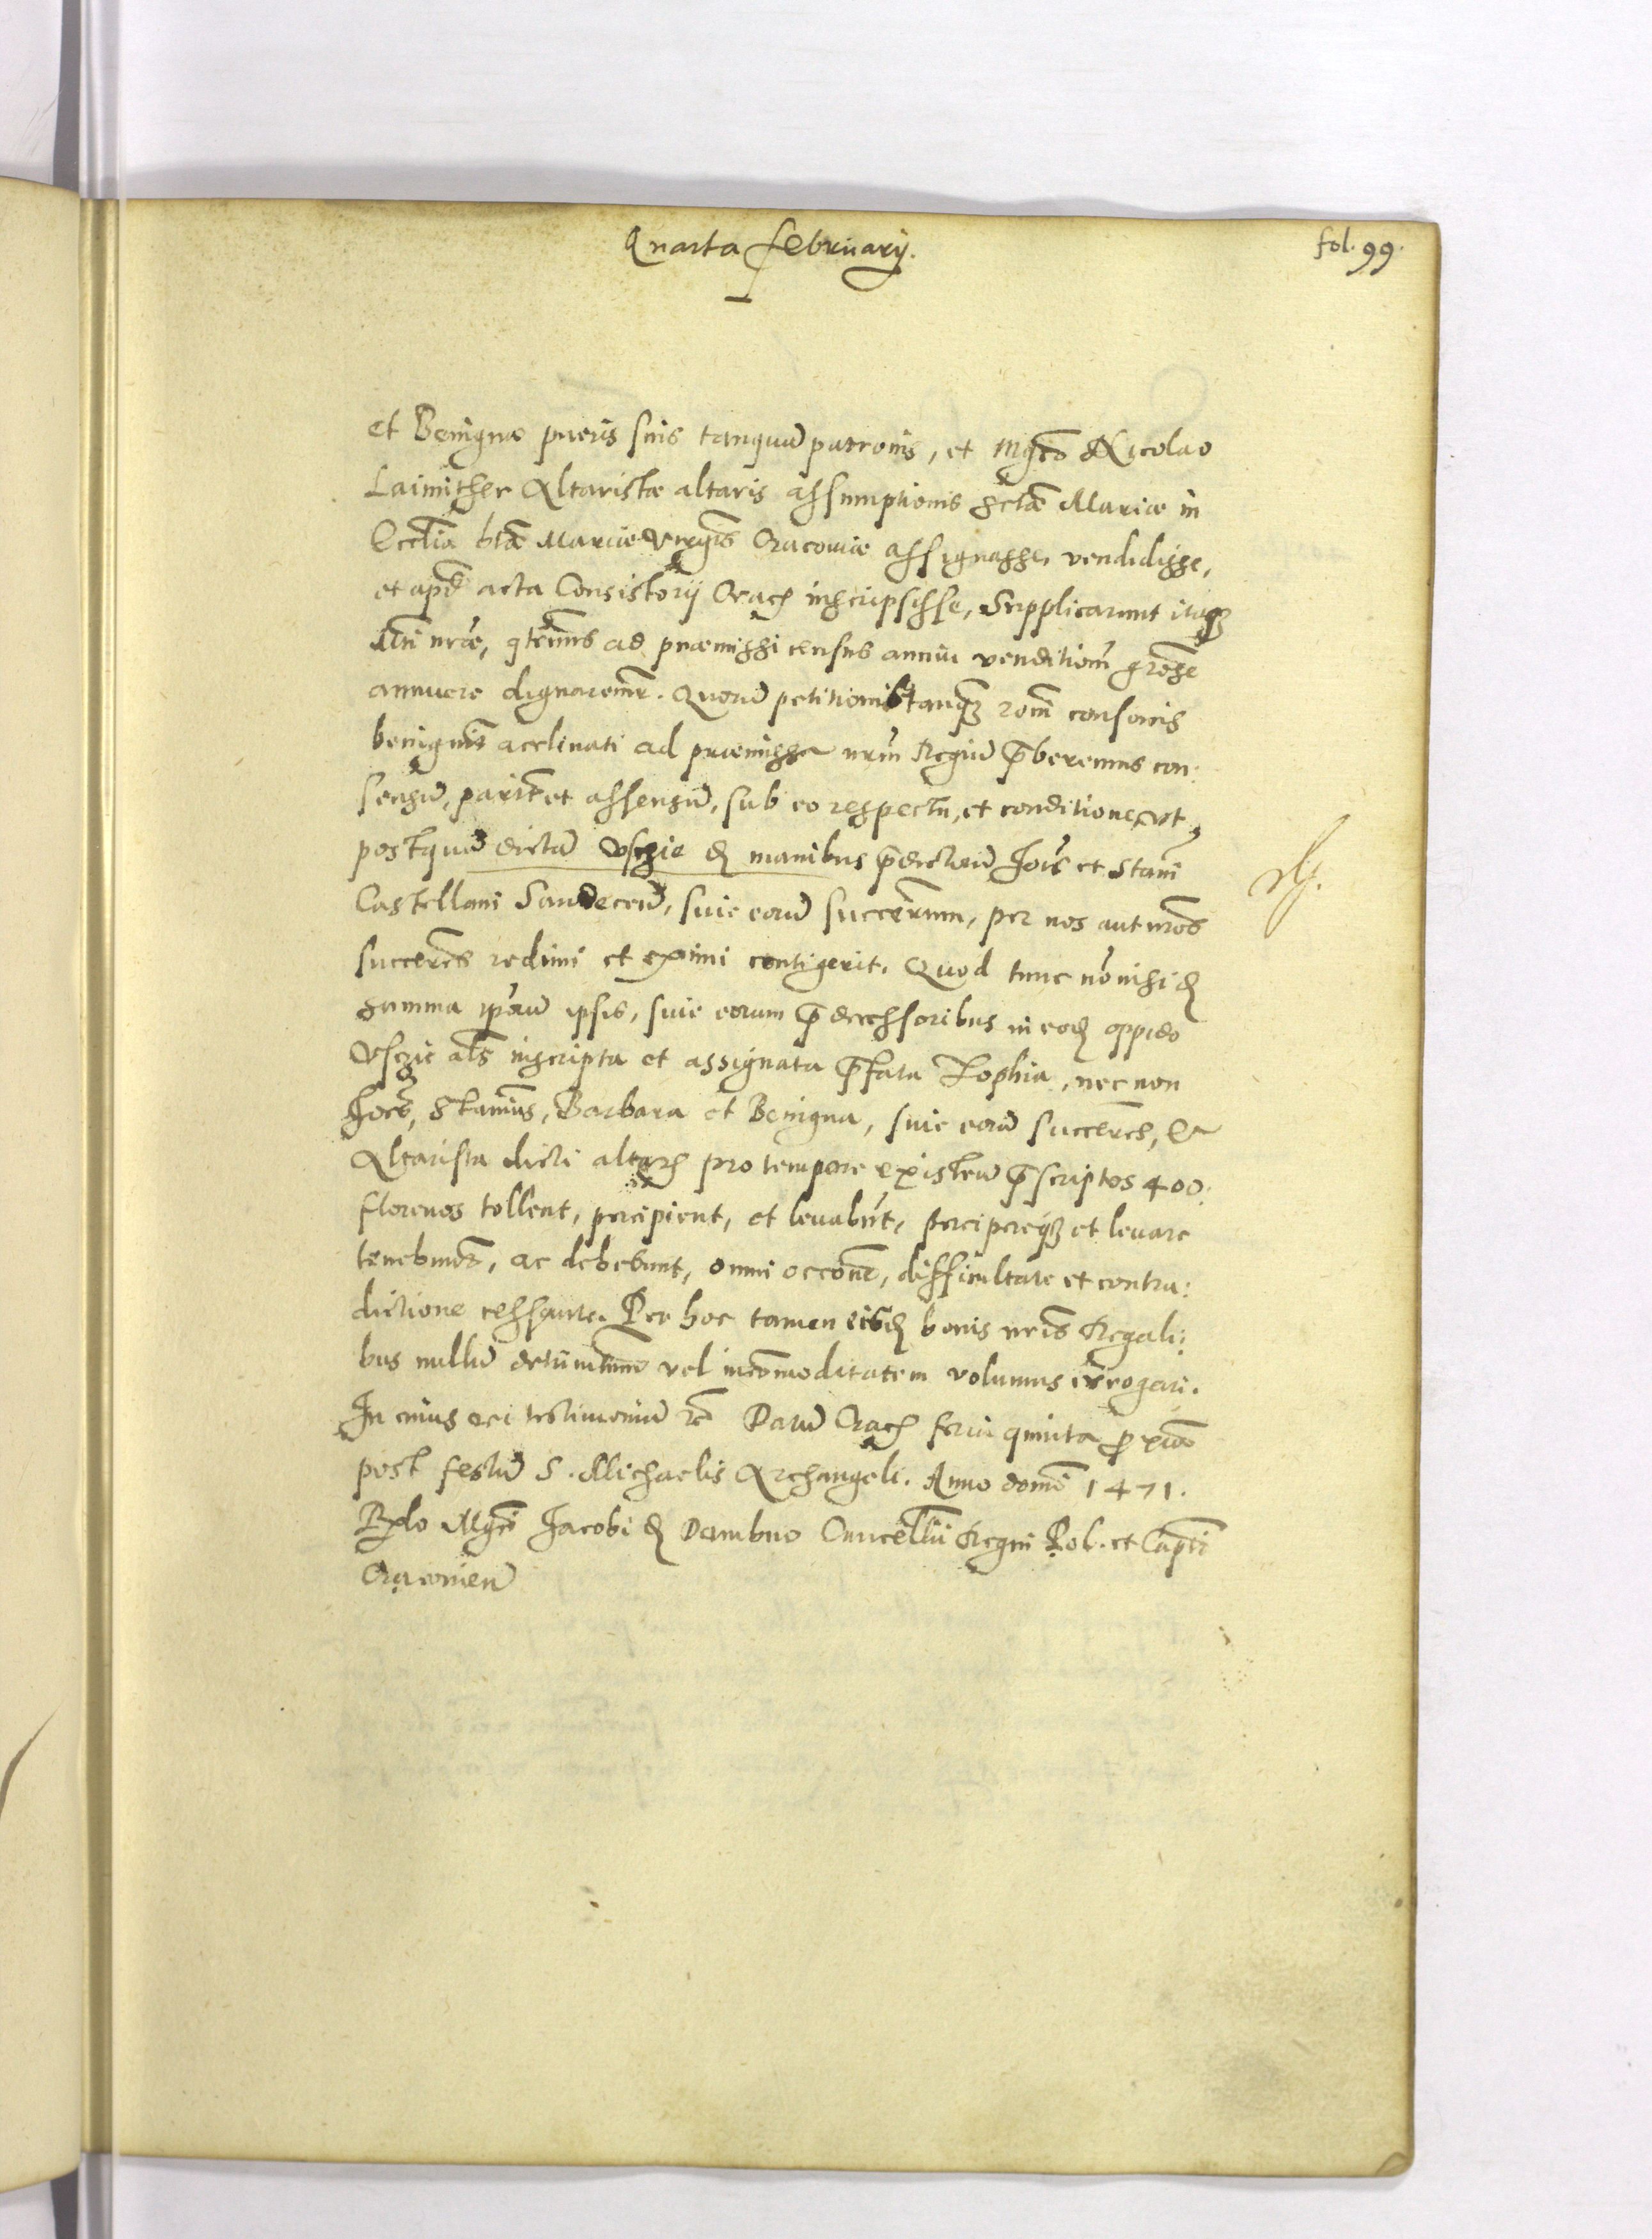 Quarta februarij.
fol. 99.
et Benignae pueris suis tanquā patronis, et Mgrō Nicolao
Laimither Altaristae altaris assumptionis Sctāe Mariae in
Eccliā btāe Mariae Virgīs Cracoviae assignasse, vendidisse,
et apd acta Consistorij Crac inscripsisse, Supplicarunt itaq
Mti nrāe, qtenus ad praemissi census annui venditionē grose
annuere dignaremr. Quorū petitionibs tanq rōni consonis
benignit acclinati ad praemissa nrum Regiū pberemus con:
sensū, parit et assensū, sub eo respectu, et conditione, vt
postquā dictū Vscie d manibus pdictorū Jois et Stani
Castellani Sandecen, sive eorū succerum, per nos aut nros
succeres redimi et eximi contigerit. Quod tunc nō nisi d
summa ipsis, sive eorum pdecessoribus in eod oppido
Vscie als inscripta et assignata pfata Zophia, nec non
Joes, Stanius, Barbara et Benigna, sive eorū succeres, &
Altarista dicti altaris pro tempore existen pscriptos 400.
florenos tollent, percipient, et levabūt, percipereq et levare
tenebuntr, ac debebunt, omni occone, difficultate et contra:
dictione cessante. Per hoc tamen eisd bonis nris Regali:
bus nullū detrimentum vel incōmoditatem volumus irrogari.
In cuius rei testimoniū rc Datū Crac feria quinta proxia
post festū S. Michaelis Archangeli. Anno domi 1471.
Rlo Mgci Jacobi d Dambno Cancellii Regni Pol. et Capti
Cracovien